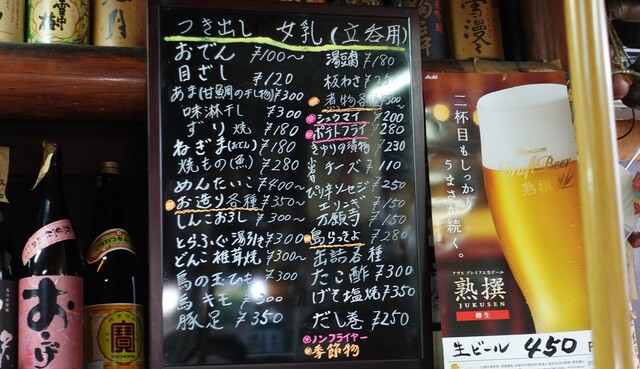 つき出し 女乳(立呑用)
おでん ¥100〜
目ざし ¥120
あま(甘鯛の干し物)¥300
味淋干し ¥300
ずり焼 ¥180
ねぎま(おでん) ¥180
焼もの(魚) ¥280
めんたいこ ¥400〜
お造り各種 ¥350〜
しんこおろし ¥300〜
とらふぐ湯引き ¥300
どんこ椎茸焼 ¥300〜
鳥の玉ひも ¥300
鳥キモ ¥300
豚足 ¥350
湯豆腐 ¥180
板わさ
煮物各種 ¥300
シュウマイ ¥200
ポテトフライ ¥280
きゅうりの漬物 ¥230
チーズ ¥110
ぴり辛ソーセージ ¥250
エリンギ ¥150
万願寺 ¥150
鳥らっきょ ¥280
缶詰各種
たこ酢 ¥300
げそ塩焼 ¥350
だし巻 ¥250
ノンフライヤー
季節物
Asahi
二杯目もしっかり
うまさが続く。
Premium
Draft Beer
熟撰
アサヒプレミアム生ビール
熟撰
JUKUSEN
樽生
生ビール 450円
雪中梅
雪漫々
寶